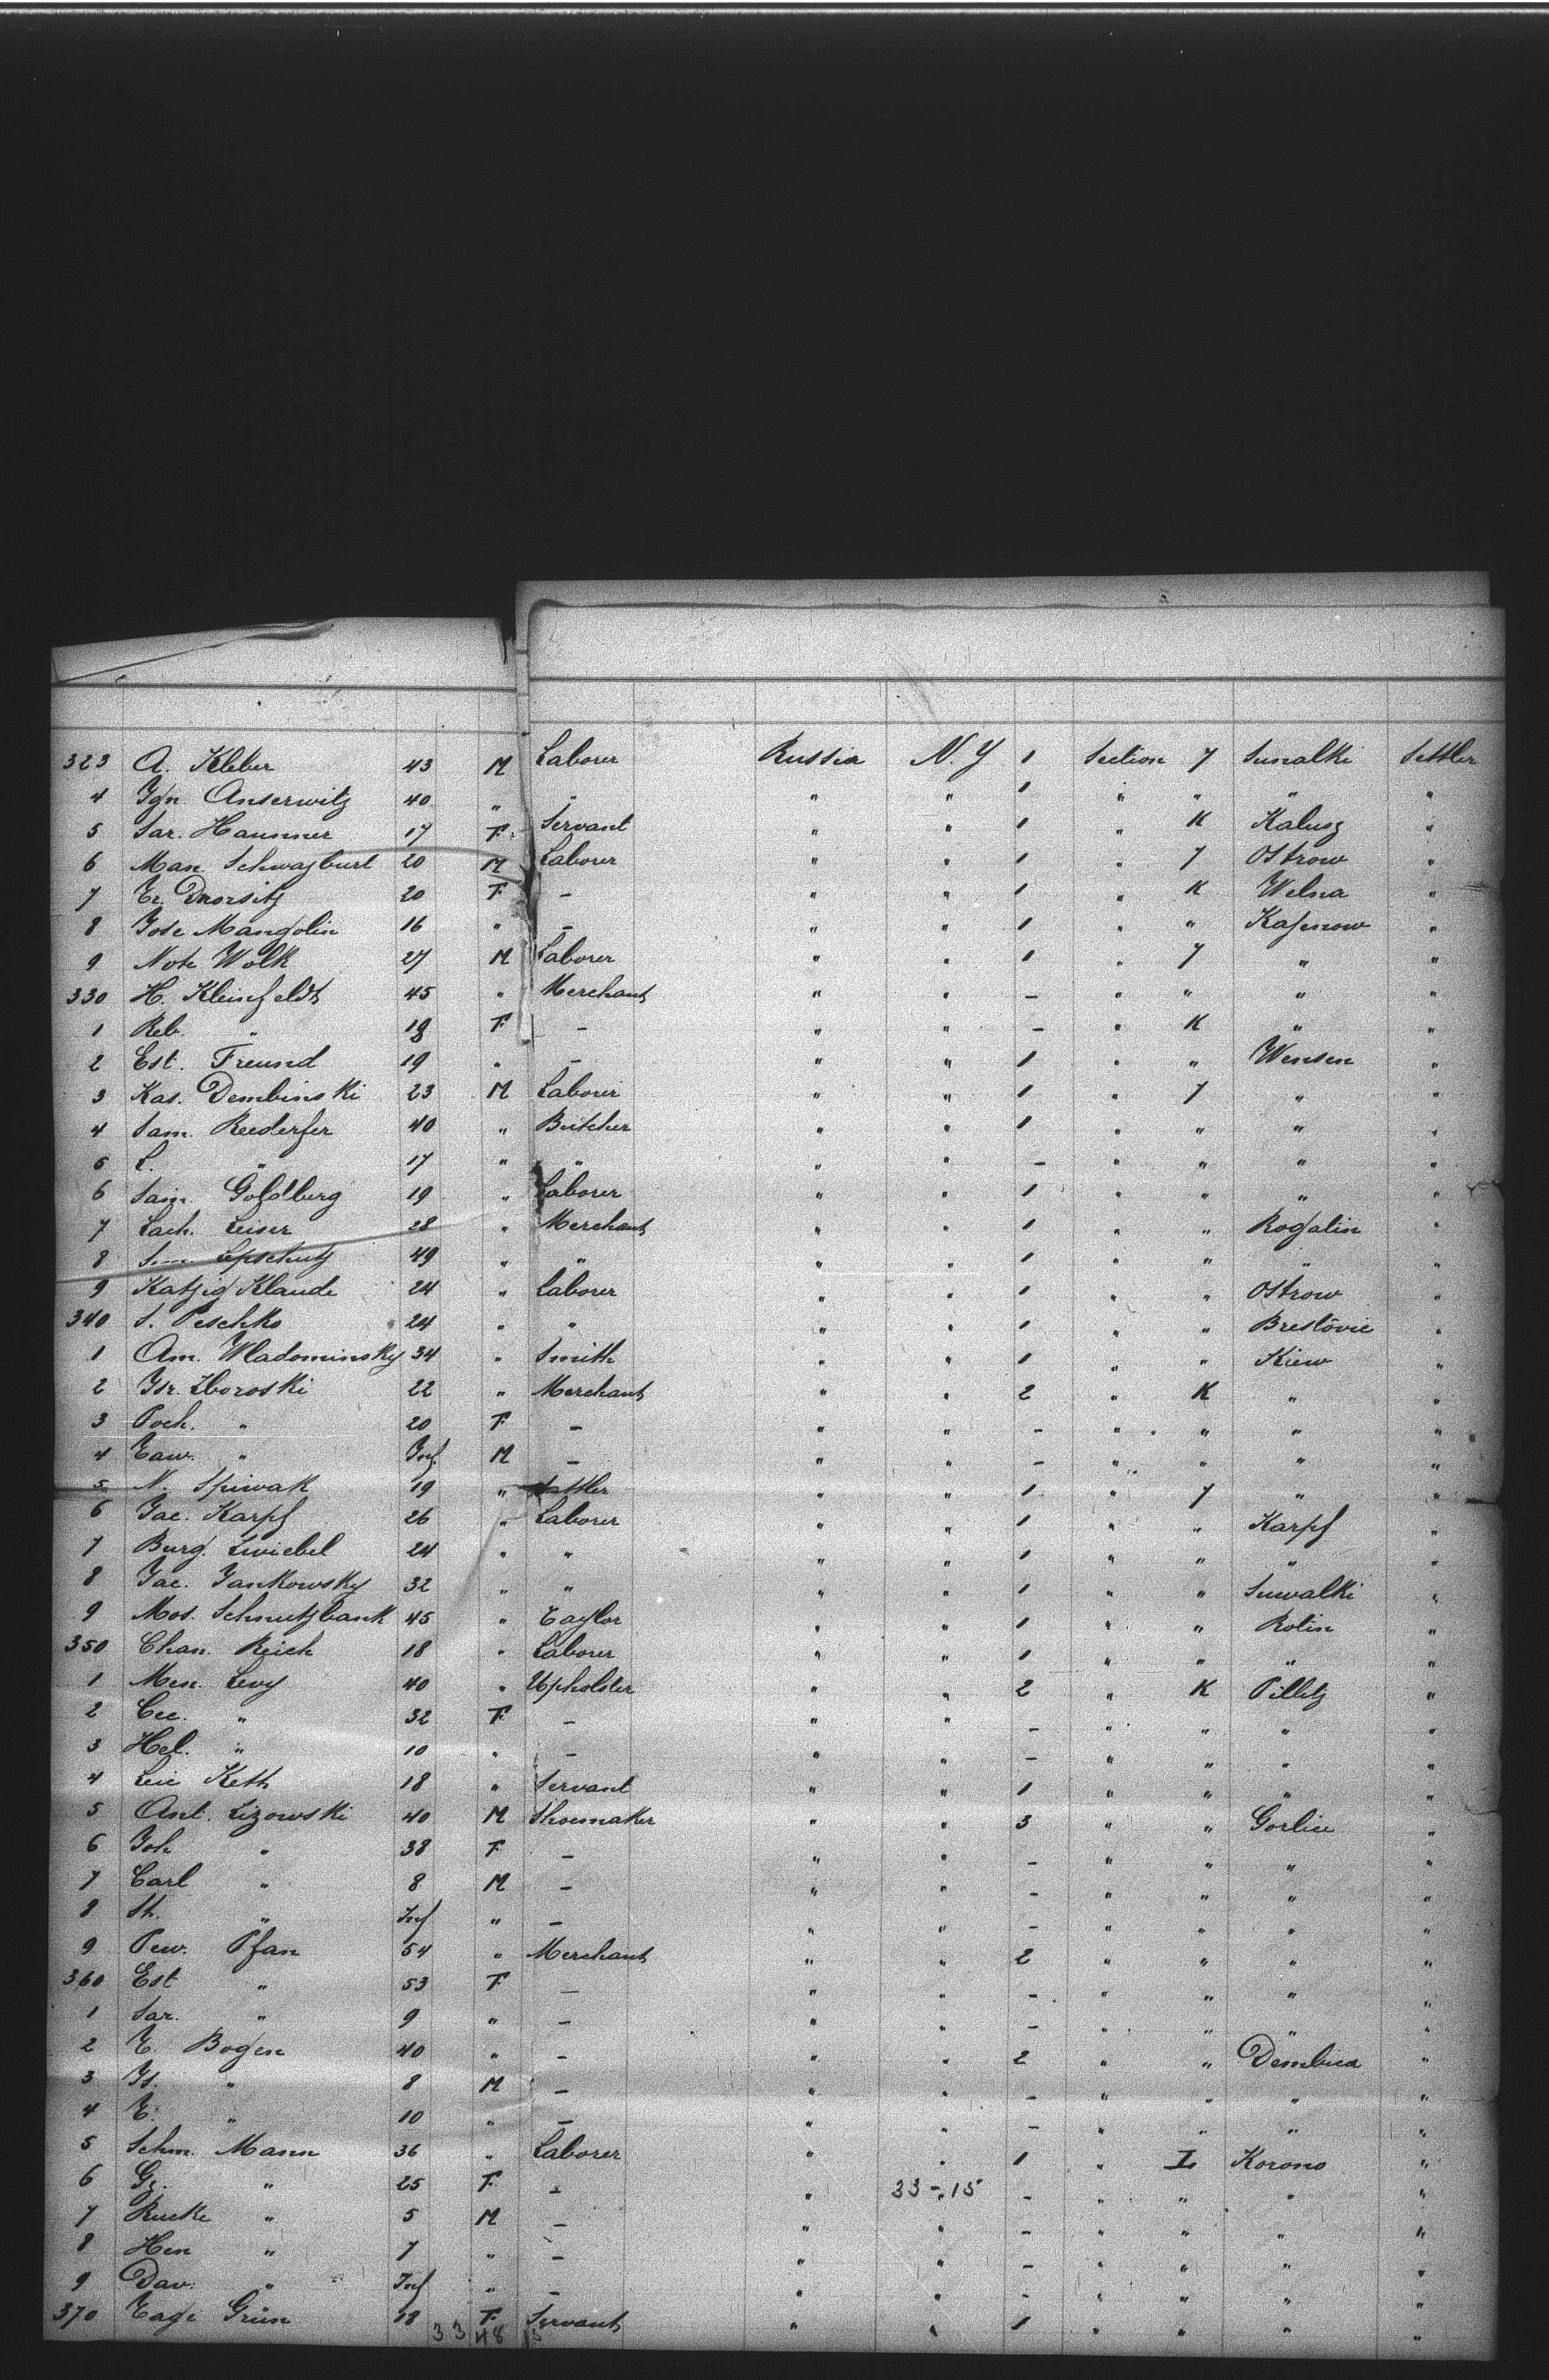 323 A. Kleber 43 M Laborer Russia N.Y 1 Section 7 Sunalki Settler
4 Ign. Anserwitz 40 " " " " 1 " " " "
5 Sar. Haunner 17 F. Servant " " 1 " K Kalusz "
6 Man. Schwazburt 20 M Laborer " " 1 " 7 Ostrow "
7 Er. Dworsitz 20 F - " " 1 " K Welna "
8 Jose Mangolin 16 " - " " 1 " " Kasenow "
9 Note Wolk 27 M Laborer " " 1 " 7 " "
330 H. Kleinfeldt 45 " Merchant " " - " " " "
1 Reb. " 18 F - " " - " K " "
2 Est. Freund 19 " - " " 1 " " Wensen "
3 Kas. Dembinski 23 M Laborer " " 1 " 7 " "
4 Sam. Reederfer 40 " Butcher " " 1 " " " "
5 L. " 17 " " " " - " " " "
6 Sam. Goldberg 19 " Laborer " " 1 " " " "
7 Lach. Leiser 28 " Merchant " " 1 " " Rogalin "
8 Lipschutz 49 " " " " 1 " " " "
9 Katzig Klaude 24 " Laborer " " 1 " " Ostrow "
340 S. Peschko 24 " " " " 1 " " Breslovie "
1 Am. Wladominsky 34 " Smith " " 1 " " Kiew "
2 Isr. Zboroski 22 " Merchant " " 2 " K " "
3 Poch. " 20 F - " " - " " " "
4 Taw. " Inf. M - " " - " " " "
5 N. Spiwak 19 " Settler " " 1 " 7 " "
6 Jac. Karpf 26 " Laborer " " 1 " " Karpf "
7 Burg. Zwiebel 24 " " " " 1 " " " "
8 Jac. Jankowsky 32 " " " " 1 " " Suwalki "
9 Mos. Schnutzbank 45 " Taylor " " 1 " " Rolin "
350 Chan. Reich 18 " Laborer " " 1 " " " "
1 Men. Levy 40 " Upholster " " 2 " K Pillitz "
2 Cec. " 32 F - " " - " " " "
3 Hel. " 10 " - " " - " " " "
4 Leie Keth 18 " Servant " " 1 " " " "
5 Ant. Lizowski 40 M Shoemaker " " 3 " " Gorlice "
6 Joh " 38 F - " " - " " " "
7 Carl " 8 M - " " - " " " "
8 St. " Inf " - " " - " " " "
9 Pew. Pfan 54 " Merchant " " 2 " " " "
360 Est " 53 F - " " - " " " "
1 Sar. " 9 " - " " - " " " "
2 E. Bogen 40 " - " " 2 " " Dembica "
3 Is. " 8 M - " " - " " " "
4 E. " 10 " - " " - " " " "
5 Schm. Mann 36 " Laborer " " 1 " I Korono "
6 Gz. " 25 F - " 33-15 " - " " " "
7 Rucke " 5 M - " " - " " " "
8 Hen " 7 " - " " - " " " "
9 Dav. " Inf " - " " - " " " "
370 Tage Grün 18 F. Servant " " 1 " " " "
33 48